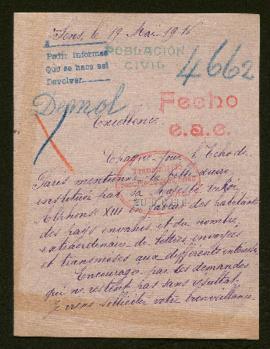 Sens, le 19 Mai 1916
Pedir informes
Que se hace así
Devolver.
POBLACIÓN
CIVIL
4662
Demol
Fecho
e.a.e.
Excellence.
l'Echo de
Paris mentionne le
institué par sa Majesté le Roi
Alphonse XIII en faveur des habitants
des pays envahis et du nombre
extraordinaire de lettres envoyées
et transmises aux différents intéressés
Encouragé par les demandes
qui ne restent pas sans résultat,
je viens solliciter votre bienveillance.